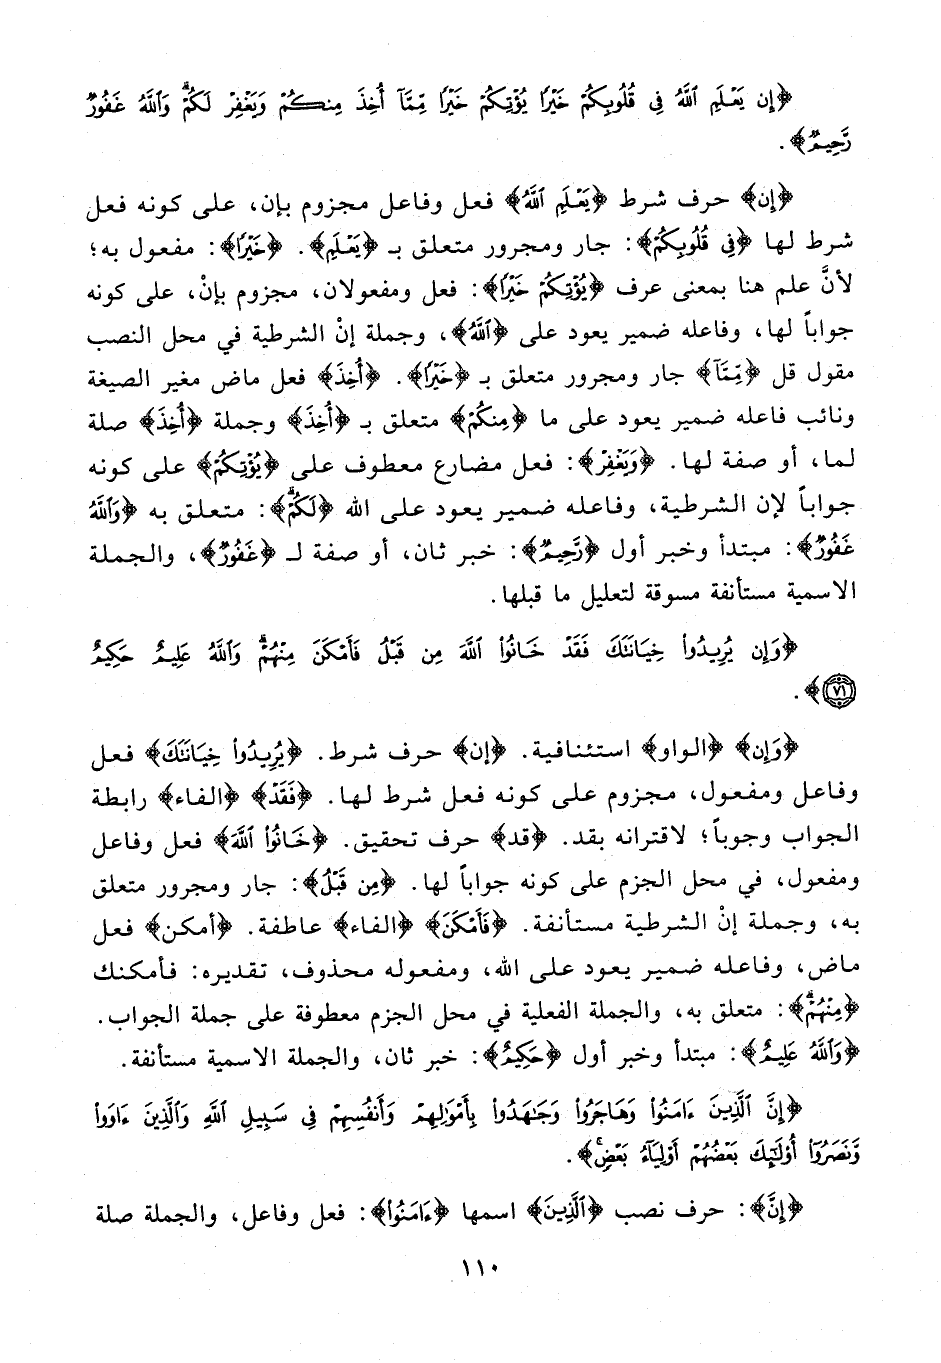 ﴿إِن يَعْلَمِ ٱللَّهُ فِى قُلُوبِكُمْ خَيْرًا يُؤْتِكُمْ خَيْرًا مِّمَّآ أُخِذَ مِنكُمْ وَيَغْفِرْ لَكُمْ ۗ وَٱللَّهُ غَفُورٌ
رَّحِيمٌ﴾.
﴿إِن﴾ حرف شرط ﴿يَعْلَمِ ٱللَّهُ﴾ فعل وفاعل مجزوم بإن، على كونه فعل
شرط لها ﴿فِى قُلُوبِكُمْ﴾: جار ومجرور متعلق بـ ﴿يَعْلَمِ﴾. ﴿خَيْرًا﴾: مفعول به؛
لأنَّ علم هنا بمعنى عرف ﴿يُؤْتِكُمْ خَيْرًا﴾: فعل ومفعولان، مجزوم بإنْ، على كونه
جواباً لها، وفاعله ضمير يعود على ﴿ٱللَّهُ﴾، وجملة إنْ الشرطية في محل النصب
مقول قل ﴿مِّمَّآ﴾ جار ومجرور متعلق بـ ﴿خَيْرًا﴾. ﴿أُخِذَ﴾ فعل ماض مغير الصيغة
ونائب فاعله ضمير يعود على ما ﴿مِنكُمْ﴾ متعلق بـ ﴿أُخِذَ﴾ وجملة ﴿أُخِذَ﴾ صلة
لما، أو صفة لها. ﴿وَيَغْفِرْ﴾: فعل مضارع معطوف على ﴿يُؤْتِكُمْ﴾ على كونه
جواباً لإن الشرطية، وفاعله ضمير يعود على الله ﴿لَكُمْ ۗ﴾: متعلق به ﴿وَٱللَّهُ
غَفُورٌ﴾: مبتدأ وخبر أول ﴿رَّحِيمٌ﴾: خبر ثان، أو صفة لـ ﴿غَفُورٌ﴾، والجملة
الاسمية مستأنفة مسوقة لتعليل ما قبلها.
﴿وَإِن يُرِيدُوا۟ خِيَانَتَكَ فَقَدْ خَانُوا۟ ٱللَّهَ مِن قَبْلُ فَأَمْكَنَ مِنْهُمْ ۗ وَٱللَّهُ عَلِيمٌ حَكِيمٌ
٧١﴾.
﴿وَإِن﴾ ﴿الواو﴾ استئنافية. ﴿إن﴾ حرف شرط. ﴿يُرِيدُوا۟ خِيَانَتَكَ﴾ فعل
وفاعل ومفعول، مجزوم على كونه فعل شرط لها. ﴿فَقَدْ﴾ ﴿الفاء﴾ رابطة
الجواب وجوباً؛ لاقترانه بقد. ﴿قد﴾ حرف تحقيق. ﴿خَانُوا۟ ٱللَّهَ﴾ فعل وفاعل
ومفعول، في محل الجزم على كونه جواباً لها. ﴿مِن قَبْلُ﴾: جار ومجرور متعلق
به، وجملة إنْ الشرطية مستأنفة. ﴿فَأَمْكَنَ﴾ ﴿الفاء﴾ عاطفة. ﴿أمكن﴾ فعل
ماض، وفاعله ضمير يعود على الله، ومفعوله محذوف، تقديره: فأمكنك
﴿مِنْهُمْ ۗ﴾: متعلق به، والجملة الفعلية في محل الجزم معطوفة على جملة الجواب.
﴿وَٱللَّهُ عَلِيمٌ﴾: مبتدأ وخبر أول ﴿حَكِيمٌ﴾: خبر ثان، والجملة الاسمية مستأنفة.
﴿إِنَّ ٱلَّذِينَ ءَامَنُوا۟ وَهَاجَرُوا۟ وَجَـٰهَدُوا۟ بِأَمْوَٰلِهِمْ وَأَنفُسِهِمْ فِى سَبِيلِ ٱللَّهِ وَٱلَّذِينَ ءَاوَوا۟
وَّنَصَرُوٓا۟ أُو۟لَـٰٓئِكَ بَعْضُهُمْ أَوْلِيَآءُ بَعْضٍ ۚ﴾.
﴿إِنَّ﴾: حرف نصب ﴿ٱلَّذِينَ﴾ اسمها ﴿ءَامَنُوا۟﴾: فعل وفاعل، والجملة صلة
١١٠